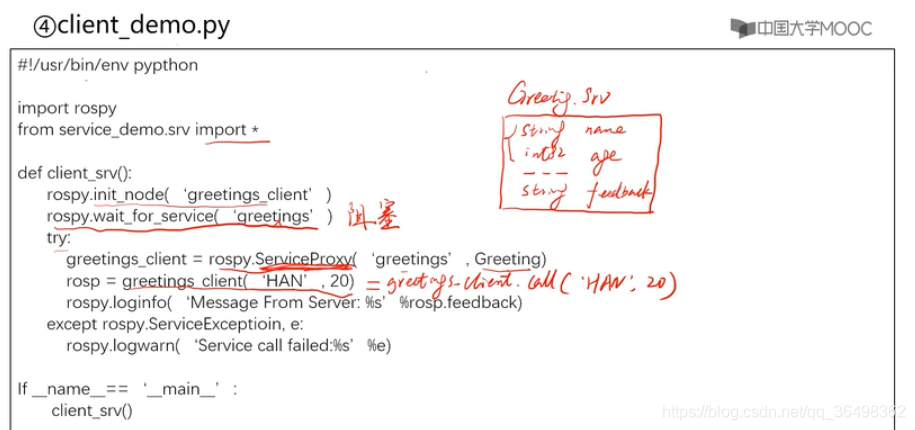 ④client_demo.py
中国大学MOOC
#!/usr/bin/env pypthon
import rospy
from service_demo.srv import *
def client_srv():
rospy.init_node( ‘greetings_client’ )
rospy.wait_for_service( ‘greetings’ ) 阻塞
try:
greetings_client = rospy.ServiceProxy( ‘greetings’ , Greeting)
rosp = greetings_client( ‘HAN’ , 20) = greetings_client.call('HAN', 20)
rospy.loginfo( ‘Message From Server: %s’ %rosp.feedback)
except rospy.ServiceExceptioin, e:
rospy.logwarn( ‘Service call failed:%s’ %e)
If __name__== ‘__main__’ :
client_srv()
Greeting.srv
string name
int32 age
---
string feedback
https://blog.csdn.net/qq_36498362